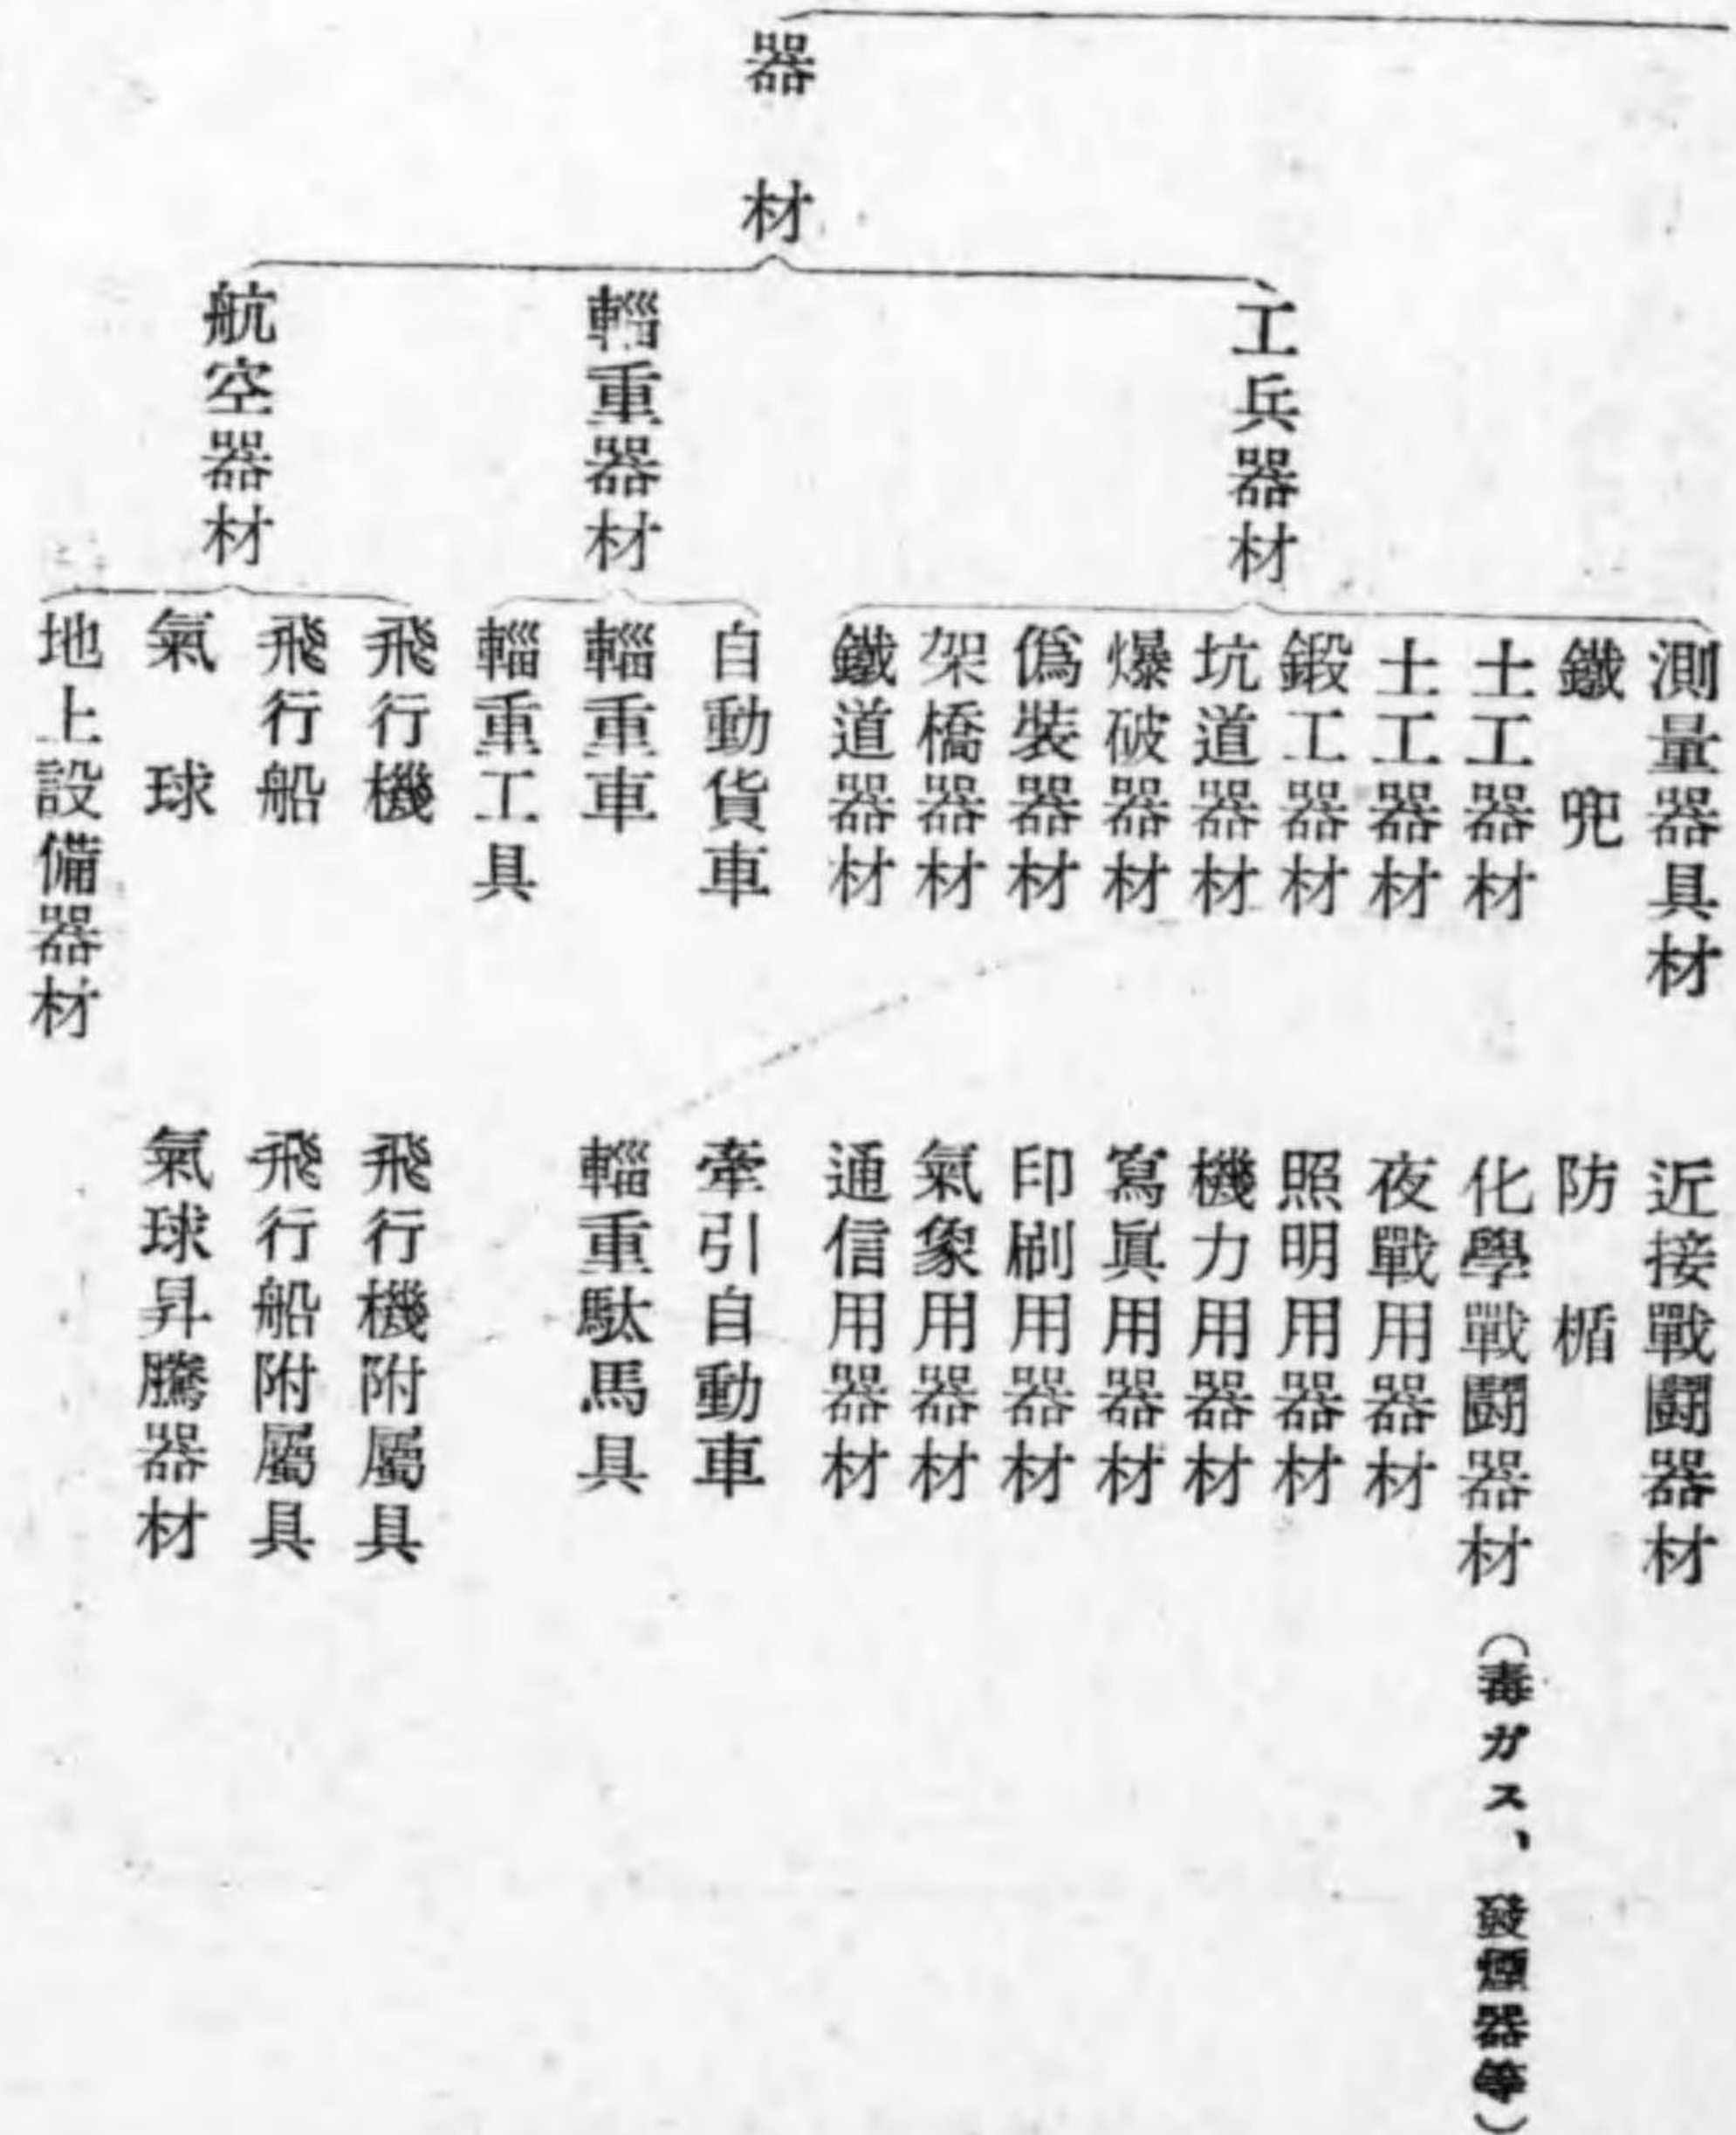 器材
工兵器材
測量器具材
近接戰鬪器材
鐵兜
防楯
土工器材
化學戰鬪器材（毒ガス、發煙器等）
土工器材
夜戰用器材
鍛工器材
照明用器材
坑道器材
機力用器材
爆破器材
寫眞用器材
僞裝器材
印刷用器材
架橋器材
氣象用器材
鐵道器材
通信用器材
輜重器材
自動貨車
牽引自動車
輜重車
輜重駄馬具
輜重工具
航空器材
飛行機
飛行機附屬具
飛行船
飛行船附屬具
氣球
氣球昇騰器材
地上設備器材